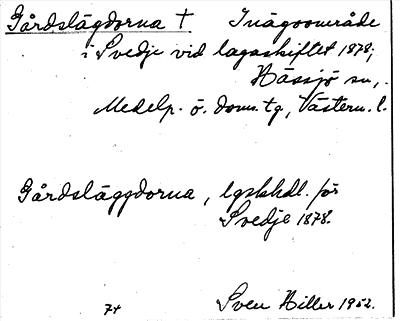 Gårdslägdorna † Inägoområde
i Svedje vid lagaskiftet 1878;
Hässjö sn,
Medelp. ö. doms. tg, Västern. l.
Gårdsläggdorna, lgskhdl. för
Svedje 1878.
7+ Sven Hiller 1952.